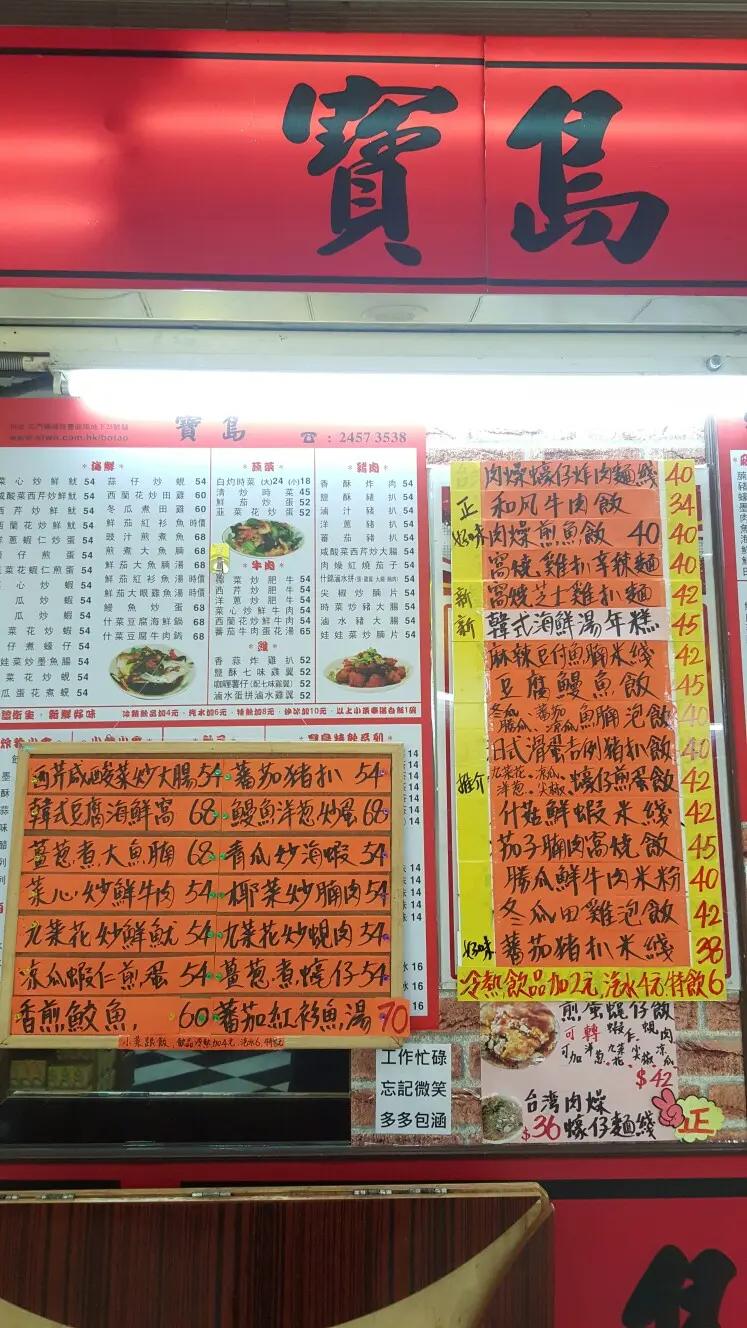 寶島
寶島
☎ : 2457 3538
www.atwo.com.hk/botao
海鮮
菜心炒鮮魷 54
鹹酸菜西芹炒鮮魷 54
西芹炒鮮魷 54
西蘭花炒鮮魷 54
洋蔥蝦仁炒蛋 54
蠔仔煎蛋 54
菜花蝦仁煎蛋 54
心炒蝦 54
瓜炒蝦 54
瓜炒蝦 54
菜花炒蝦 54
仔煮蠔仔 54
娃菜炒墨魚腸 54
菜花炒蜆 54
瓜蛋花煮蜆 54
蒜仔炒蜆 54
西蘭花炒田雞 60
冬瓜煮田雞 60
鮮茄紅衫魚 時價
豉汁煎煮魚 68
煎煮大魚腩 68
鮮茄大魚腩湯 68
鮮茄紅衫魚湯 時價
鮮茄大眼雞魚湯 時價
鰻魚炒蛋 68
什菜豆腐海鮮鍋 68
什菜豆腐牛肉鍋 68
蔬菜
白灼時菜 (大)24 (小)18
清炒時菜 45
鮮茄炒蛋 52
韮菜花炒蛋 52
牛肉
菜炒肥牛 54
西芹炒肥牛 54
洋蔥炒肥牛 54
菜心炒鮮牛肉 54
西蘭花炒鮮牛肉 54
蕃茄牛肉蛋花湯 65
雞
香蒜炸雞扒 52
鹽酥七味雞翼 52
咖喱薯仔(配七味雞翼) 52
滷水蛋拼滷水雞翼 52
豬肉
香酥炸肉 54
鹽酥豬扒 54
滷汁豬扒 54
洋蔥豬扒 54
蕃茄豬扒 54
咸酸菜西芹炒大腸 54
肉燥紅燒茄子 54
尖椒炒腩片 54
時菜炒豬大腸 54
滷水豬大腸 54
娃娃菜炒腩片 54
凍熱飲品加4元，汽水加6元，特飲加8元，炒冰加10元，以上小菜奉送白飯1碗
西芹咸酸菜炒大腸 54
蕃茄猪扒 54
韓式豆腐海鮮窩 68
鰻魚洋葱炒蛋 68
薑葱煮大魚腩 68
青瓜炒海蝦 54
菜心炒鮮牛肉 54
椰菜炒腩肉 54
九菜花炒鮮魷 54
九菜花炒蜆肉 54
凉瓜蝦仁煎蛋 54
薑葱煮蠔仔 54
香煎鮫魚 60
蕃茄紅衫魚湯 70
小菜跟飯，飲品冷熱加4元，汽水6，特飲8元
台 肉燥蠔仔炸肉麵綫 40
正 和风牛肉飯 34
好味 肉燥煎魚飯 40 40
窩燒雞扒辛辣麵 40
新 窩燒芝士雞扒麵 42
新 韓式海鮮湯年糕 45
麻辣豆付魚腩米綫 42
豆腐鰻魚飯 45
冬瓜、蕃茄
勝瓜、凉瓜 魚腩泡飯 40
日式滑蛋吉例猪扒飯 40
推介 九菜花、凉瓜、
洋葱、尖椒 蠔仔煎蛋飯 42
什菇鮮蝦米綫 42
茄子腩肉窩燒飯 45
勝瓜鮮牛肉米粉 40
冬瓜田雞泡飯 42
好味 蕃茄猪扒米綫 38
冷熱飲品加2元 汽水4元 特飲6
煎蛋蜆仔飯
可轉 蝦仁、蜆肉
可加 洋葱、九菜花、尖椒、凉瓜
$42
台湾肉燥
$36 蠔仔麵綫
正
工作忙碌
忘記微笑
多多包涵